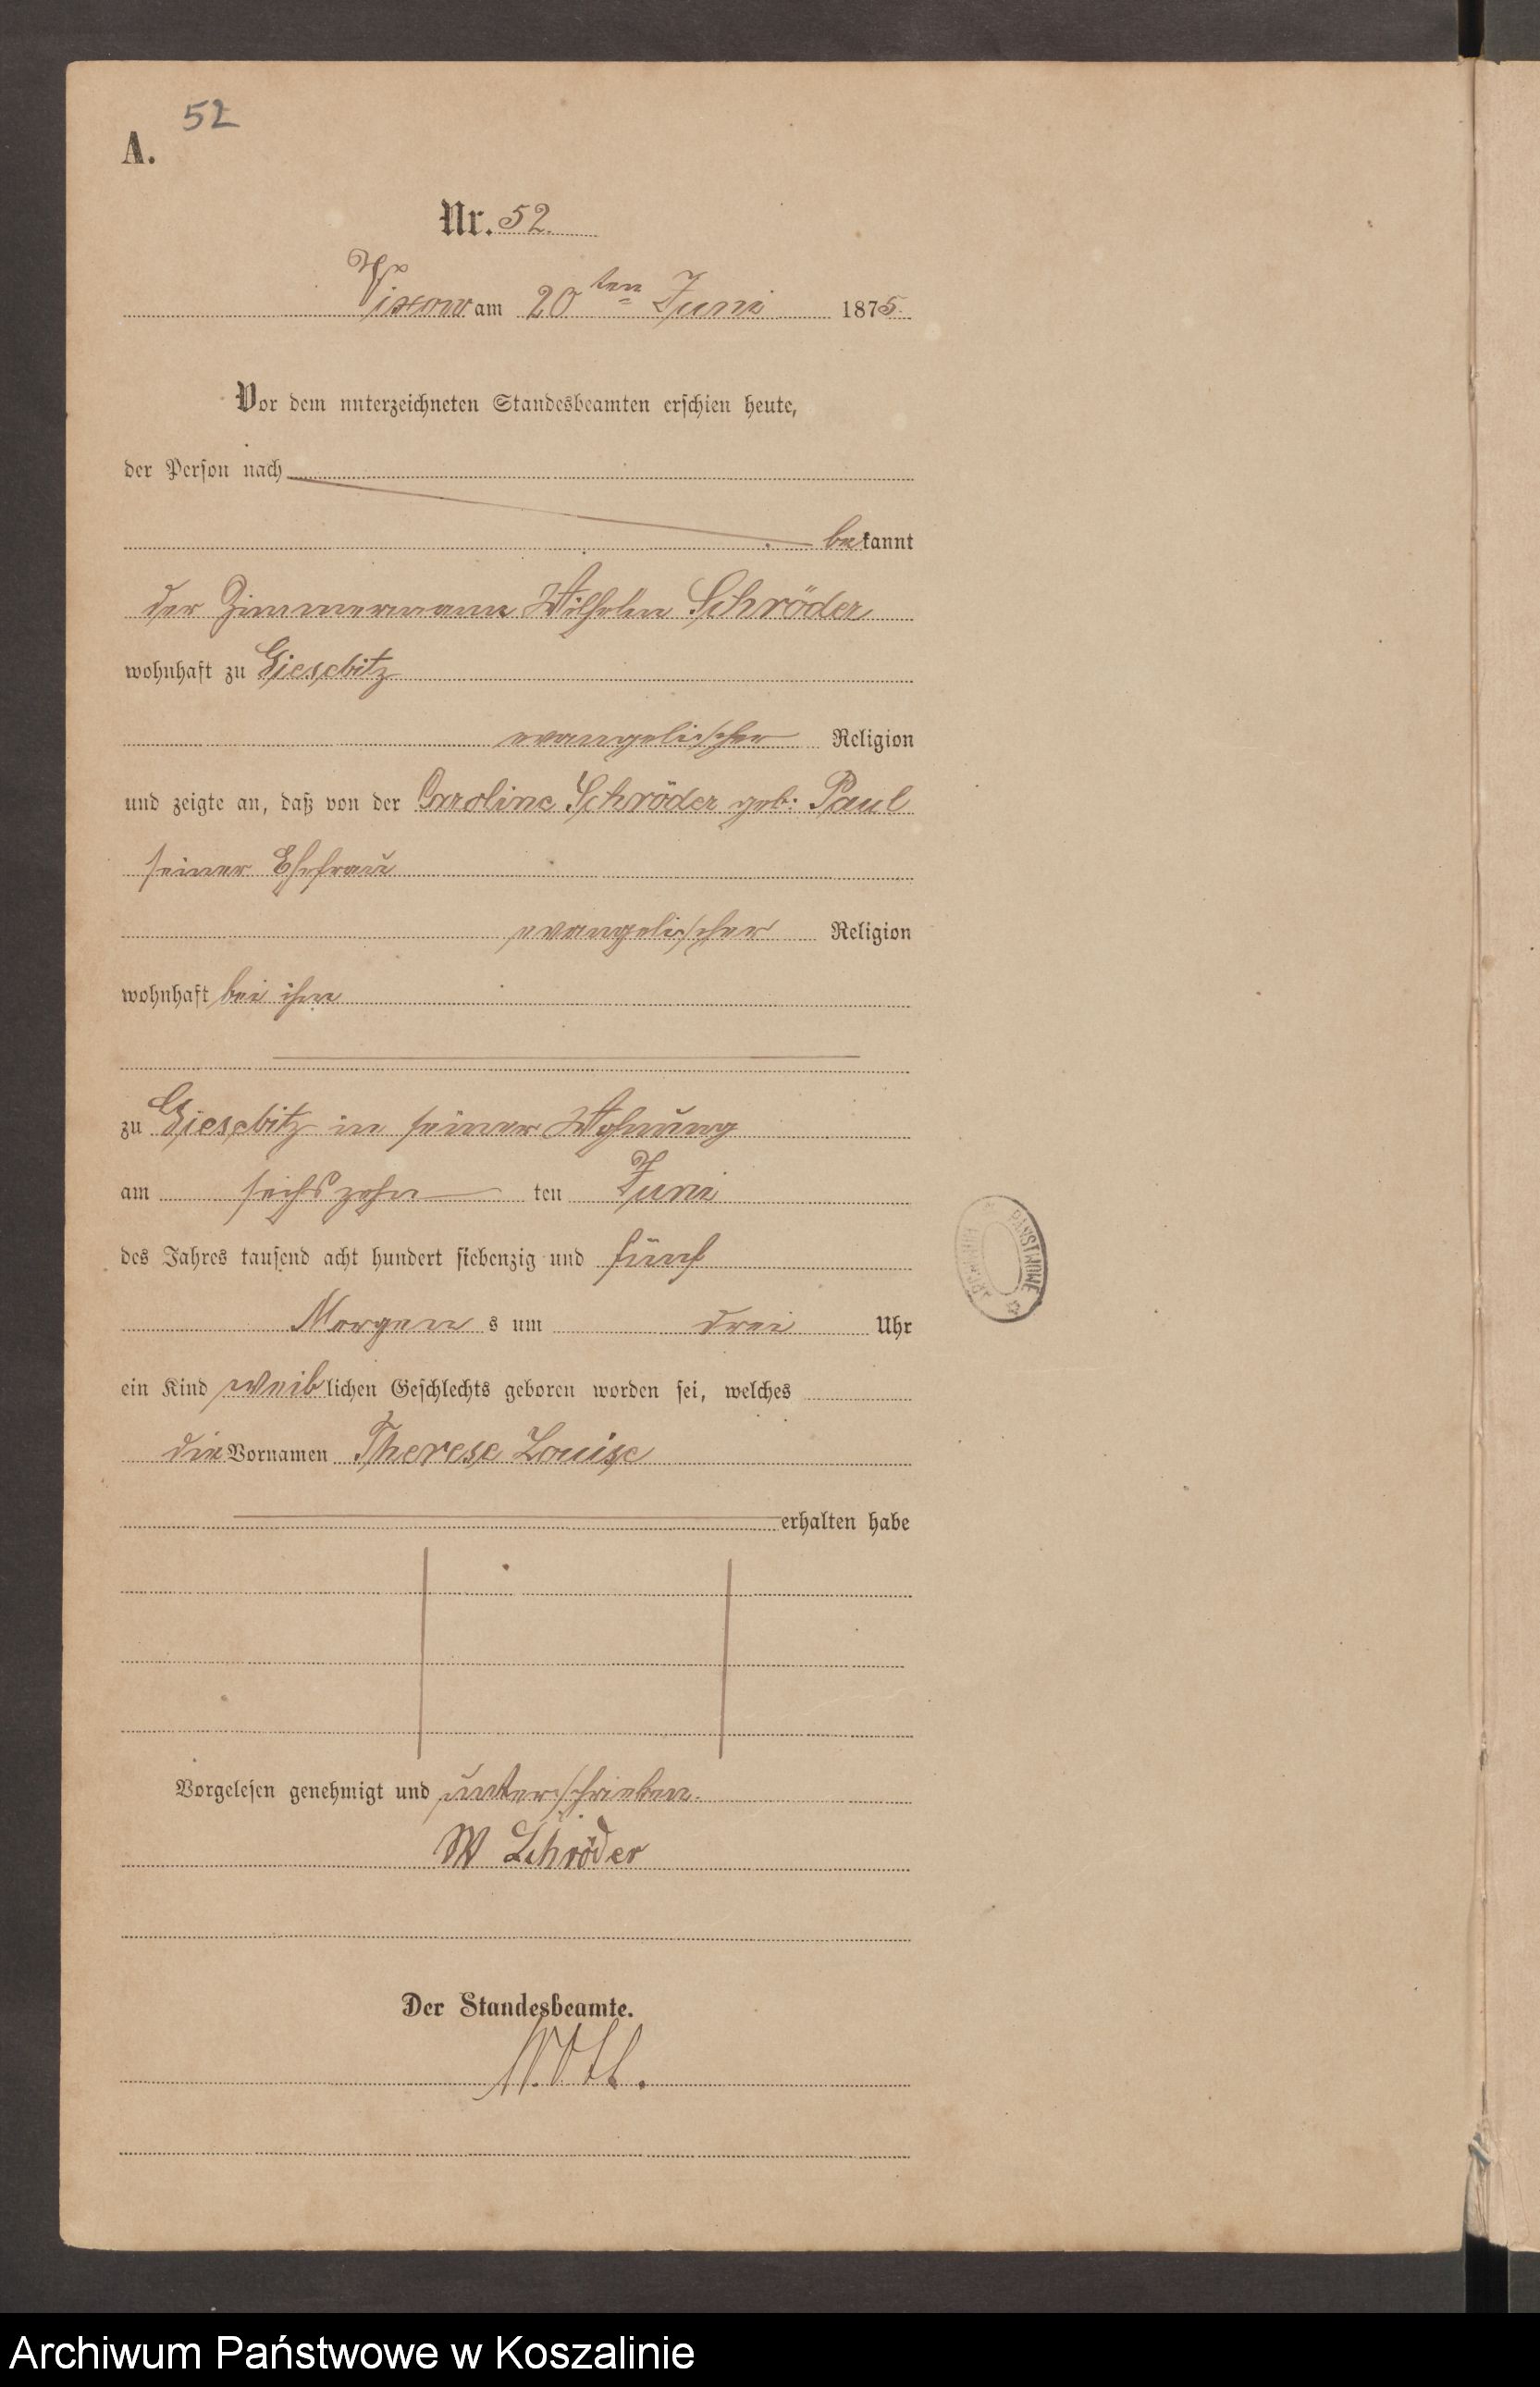 52
A.
Nr. 52.
Vixow am 20ten Juni 1875.
Vor dem unterzeichneten Standesbeamten erschien heute,
der Person nach
bekannt
der Zimmermann Wilhelm Schröder
wohnhaft zu Giesebitz
evangelischer Religion
und zeigte an, daß von der Caroline Schröder geb: Paul
seiner Ehefrau
evangelischer Religion
wohnhaft bei ihm
zu Giesebitz in seiner Wohnung
am sechszehn ten Juni
des Jahres tausend acht hundert siebenzig und fünf
Morgen s um drei Uhr
ein Kind weiblichen Geschlechts geboren worden sei, welches
die Vornamen Therese Louise
erhalten habe
ARCHIWUM PAŃSTWOWE
Vorgelesen genehmigt und unterschrieben.
W Schröder
Der Standesbeamte.
Archiwum Państwowe w Koszalinie